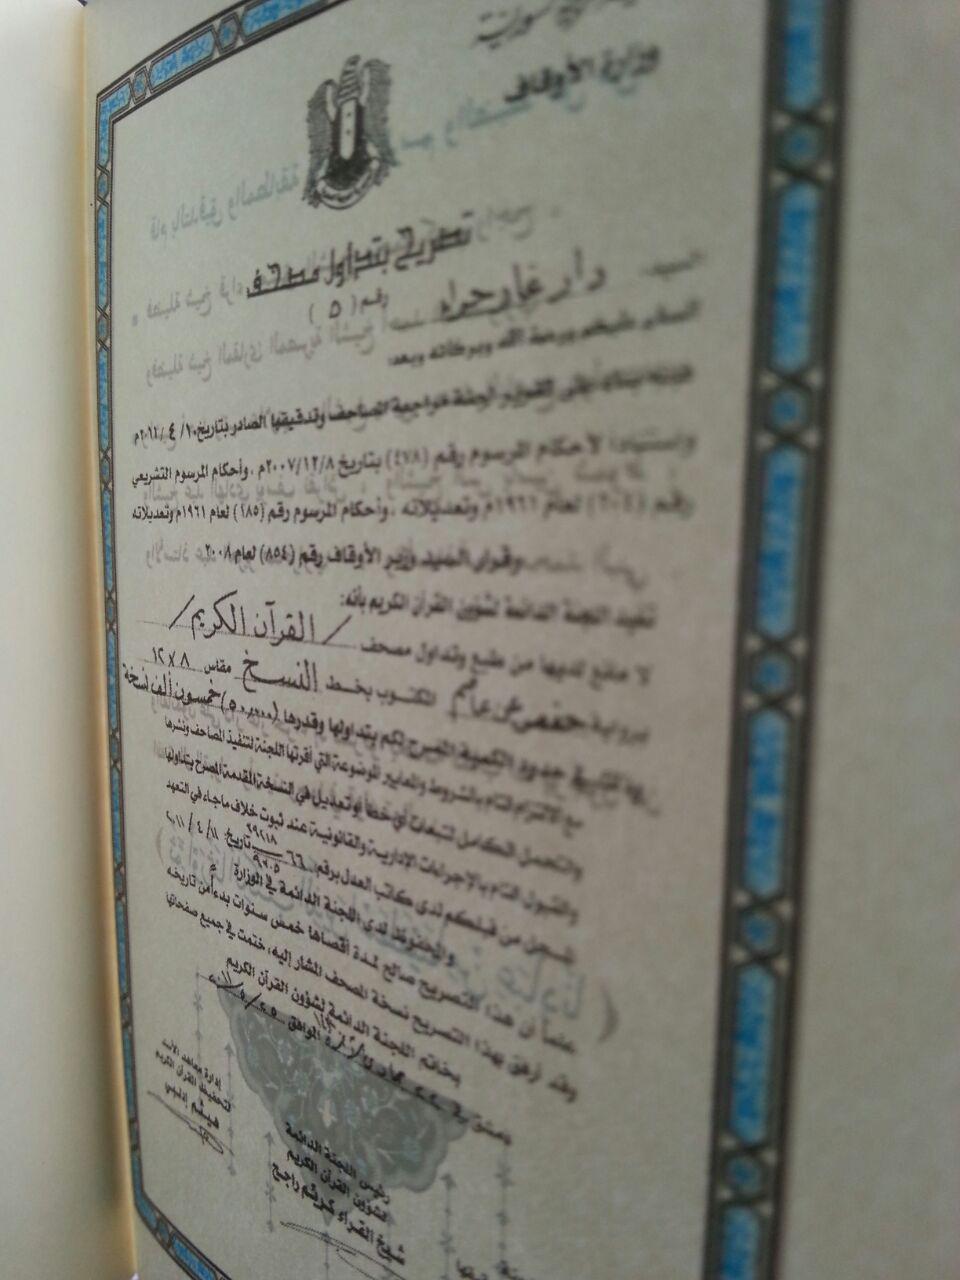 وزارة الأوقاف
تصريح بتداول مصحف
رقم ( ٥ )
دار غار حراء
السلام عليكم ورحمة الله وبركاته وبعد:
لجنة مراجعة المصاحف وتدقيقها الصادر بتاريخ
واستناداً لأحكام المرسوم رقم (٤٧٨) بتاريخ ٢٠٠٧/١٢/٨م ، وأحكام المرسوم التشريعي
رقم لعام ١٩٦١م وتعديلاته ، وأحكام المرسوم رقم (١٨٥) لعام ١٩٦١م وتعديلاته
وقرار السيد وزير الأوقاف رقم (٨٥٤) لعام ٢٠٠٨
تفيد اللجنة الدائمة لشؤون القرآن الكريم بأنه:
لا مانع لديها من طبع وتداول مصحف / القرآن الكريم /
برواية حفص عن عاصم المكتوب بخط النسخ مقاس ٨×١٢
في حدود الكمية المصرح لكم بتداولها وقدرها خمسون ألف نسخة
مع الالتزام التام بالشروط والمعايير الموضوعة التي أقرتها اللجنة لتنفيذ المصاحف ونشرها
والتحمل الكامل لتبعات أي خطأ أو تعديل في النسخة المقدمة المصرح بتداولها
والقبول التام بالإجراءات الإدارية والقانونية عند ثبوت خلاف ماجاء في التعهد
المسجل من قبلكم لدى كاتب العدل برقم بتاريخ ١١ / ٤ / ٢٠١١
والمحفوظ لدى اللجنة الدائمة في الوزارة
علماً أن هذا التصريح صالح لمدة أقصاها خمس سنوات بدءاً من تاريخه
وقد أرفق بهذا التصريح نسخة المصحف المشار إليه، ختمت في جميع صفحاتها
بخاتم اللجنة الدائمة لشؤون القرآن الكريم
دمشق في الموافق
إدارة معاهد الأسد
لتحفيظ القرآن الكريم
هيثم إدلبي
رئيس اللجنة الدائمة
لشؤون القرآن الكريم
شيخ القراء كريّم راجح